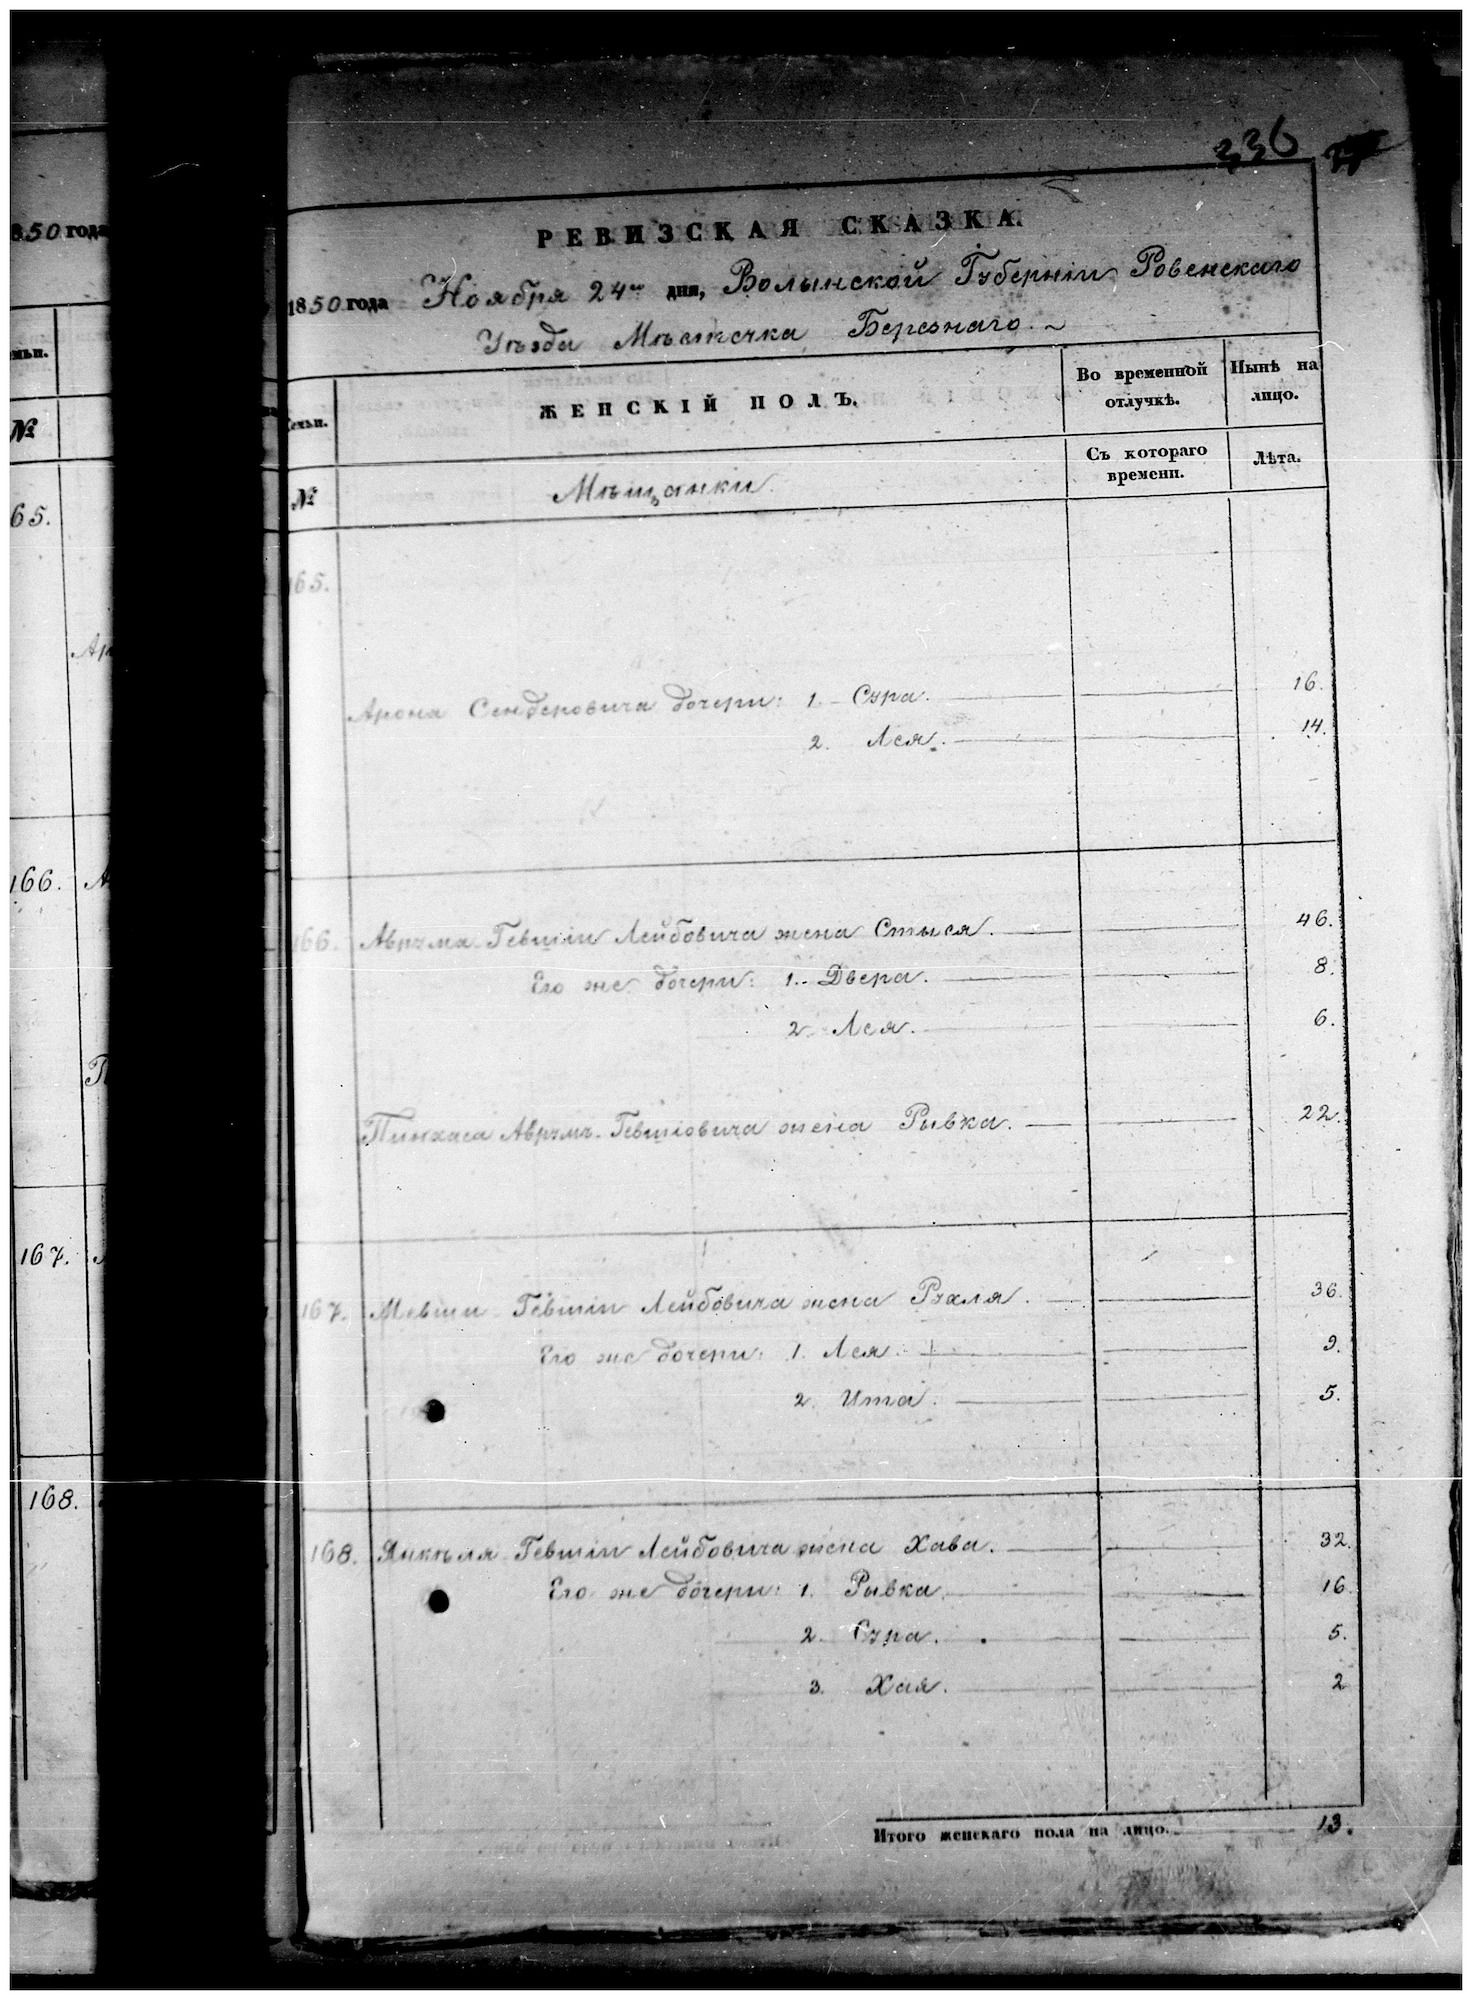 336
850 года
РЕВИЗСКАЯ СКАЗКА.
1850 года Ноября 24го дня, Волынской Губерніи Ровенскаго
Уѣзда Мѣстечка Березнаго.
мьи.
Семьи.
ЖЕНСКІЙ ПОЛЪ.
Во временной отлучкѣ.
Нынѣ на лицо.
№
№
Мѣщанки
Съ котораго времени.
Лѣта.
65.
165.
Ар
Арона Сендеровича дочери: 1. Сура. 16.
2. Лея. 14.
166.
166. Аврума Гевшіи Лейбовича жена Стыся. 46.
Его же дочери: 1. Двера. 8.
2. Лея. 6.
П
Пинхаса Аврумъ-Гевшіовича жена Рывка. 22.
167.
167. Мовши Гевшіи Лейбовича жена Рухля. 36.
Его же дочери: 1. Лея. 9.
2. Ита. 5.
168.
168. Янкѣля Гевшіи Лейбовича жена Хава. 32.
Его же дочери: 1. Рывка. 16.
2. Сура. 5.
3. Хая. 2
Итого женскаго пола на лицо. 13.